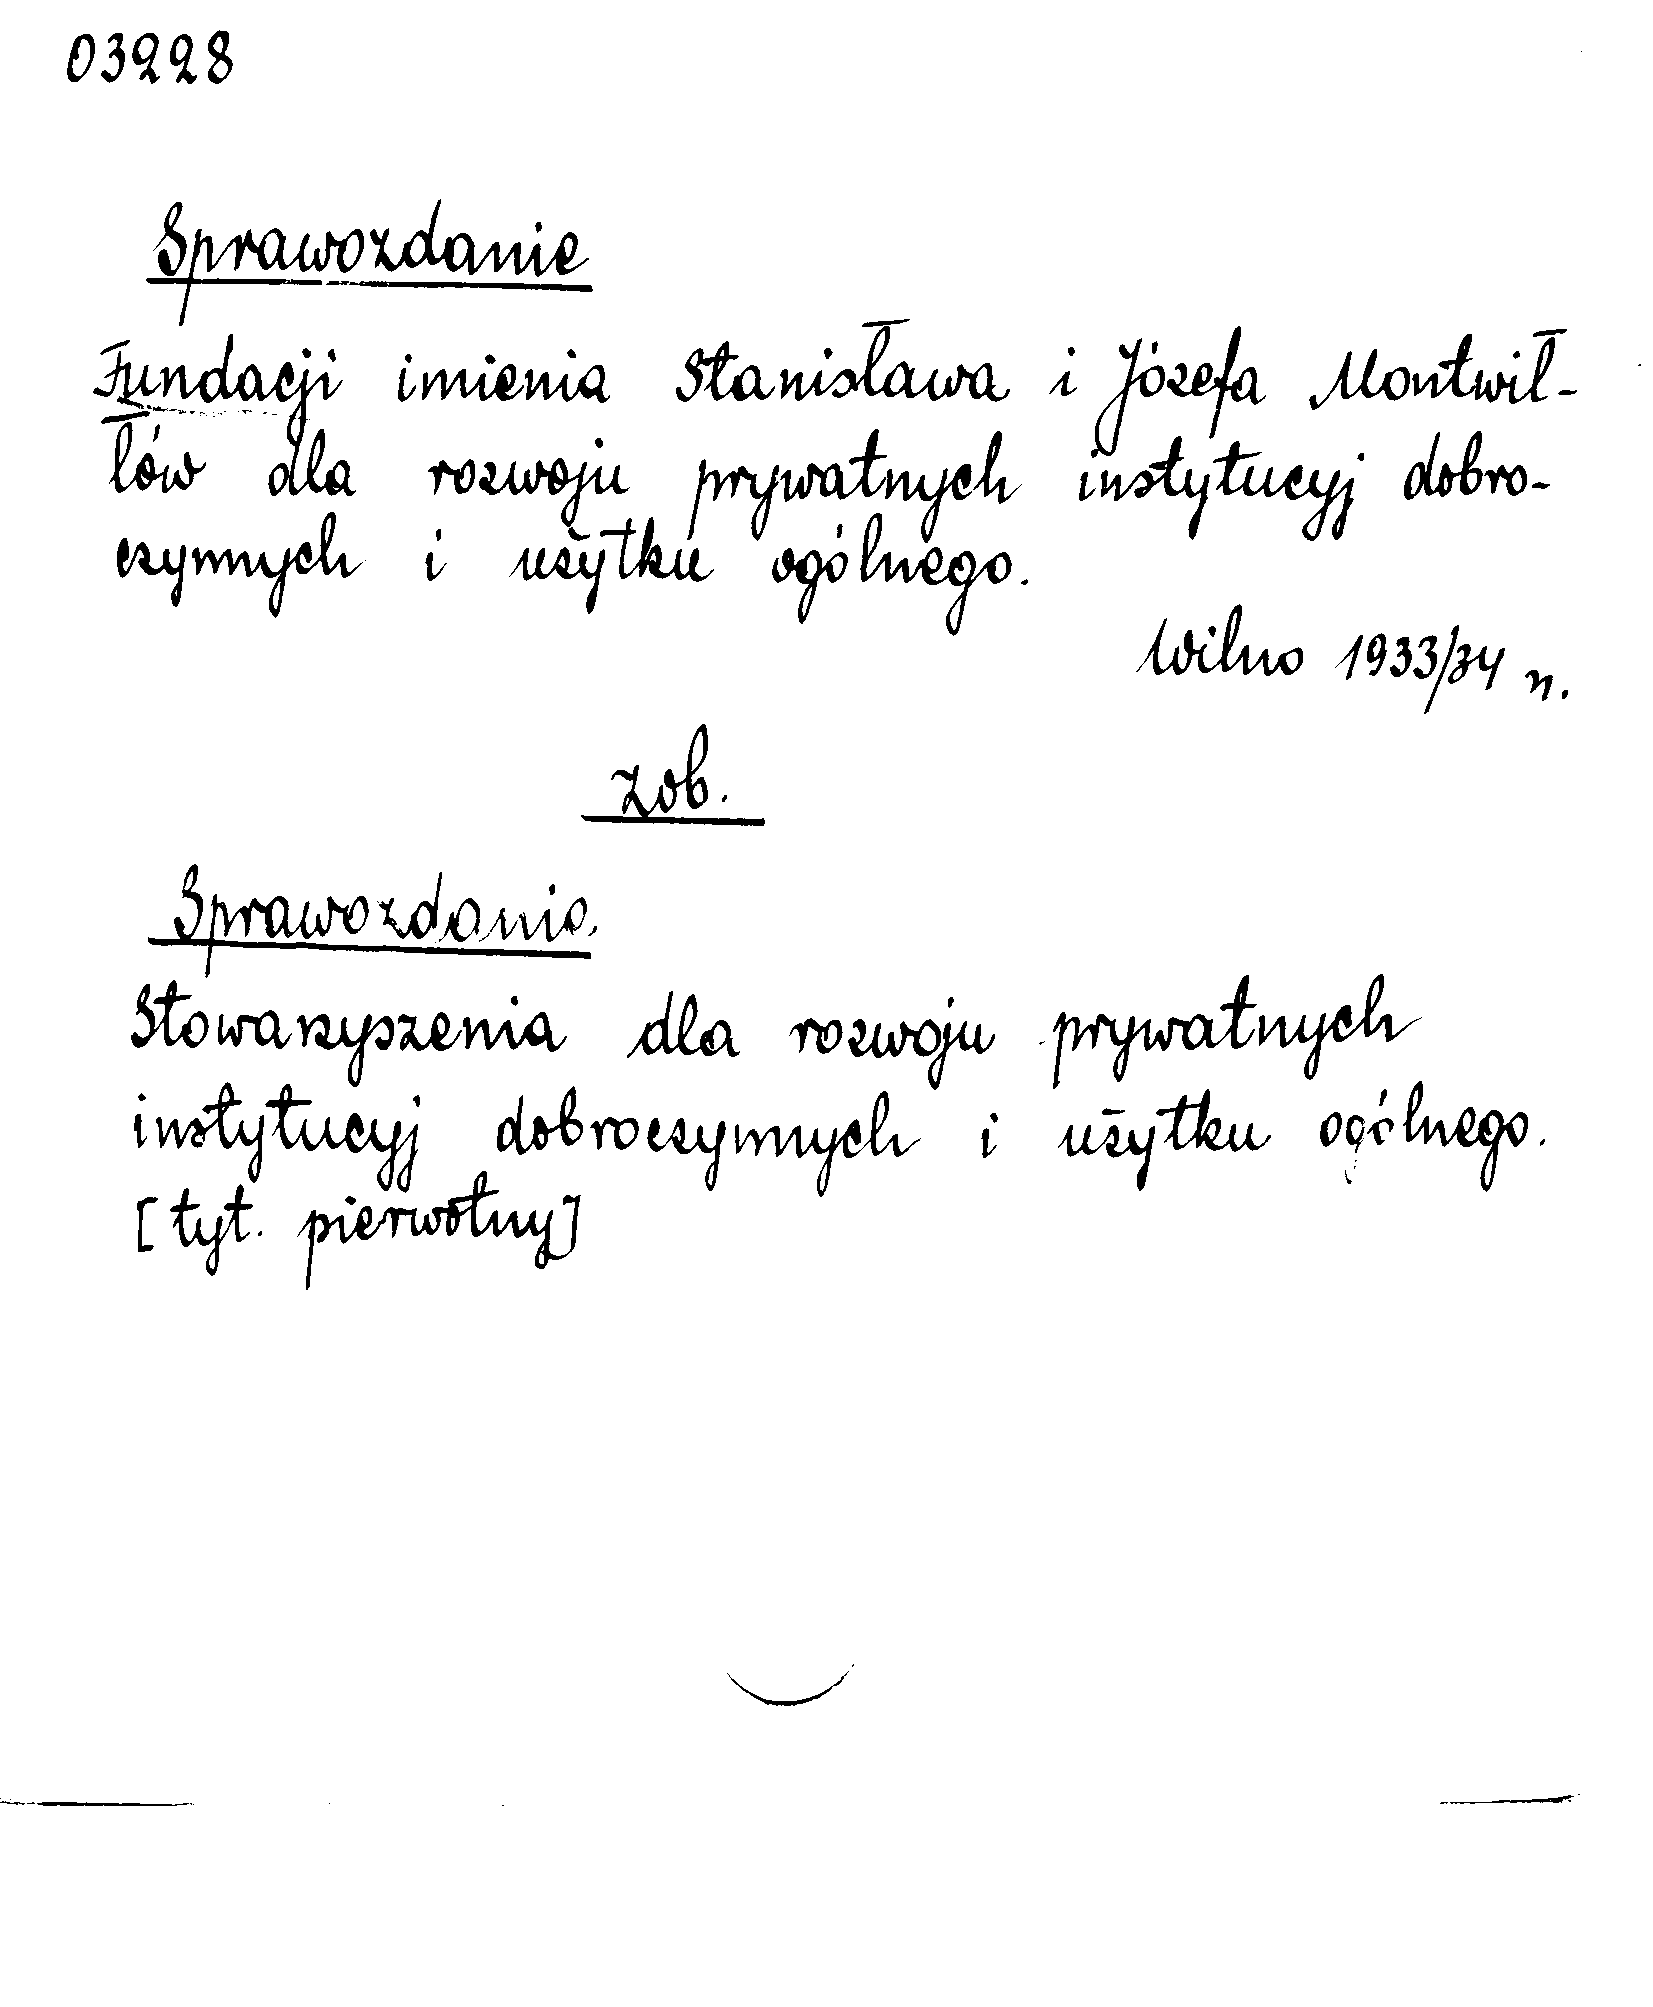 03228
Sprawozdanie
Fundacji imienia Stanisława i Józefa Montwił-
łów dla rozwoju prywatnych instytucyj dobro-
czynnych i użytku ogólnego.
Wilno 1933/34 n.
zob.
Sprawozdanie.
Stowarzyszenia dla rozwoju prywatnych
instytucyj dobroczynnych i użytku ogólnego.
[tyt. pierwotny]